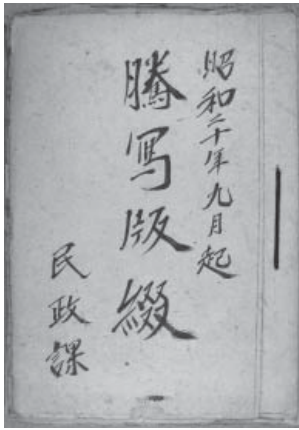 昭和二十年九月起
謄写版綴
民政課